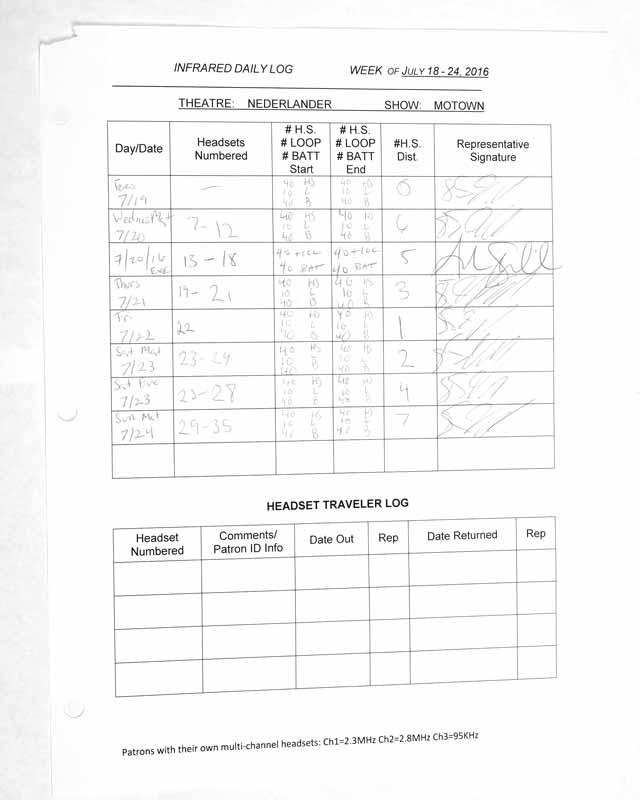 INFRARED DAILY LOG WEEK OF JULY 18 - 24, 2016
THEATRE: NEDERLANDER SHOW: MOTOWN
Day/Date Headsets Numbered # H.S. # LOOP # BATT Start # H.S. # LOOP # BATT End #H.S. Dist. Representative Signature
Tues 7/19 — 40 HS 10 L 40 B 40 HS 10 L 40 B 0
7/20 7-12 40 HS 10 L 40 B 40 HS 10 L 40 B 6
7/20/16 EVE 13-18 40 BAT 40 BAT 5
Thurs 7/21 19-21 40 HS 10 L 40 B 40 HS 10 L 40 B 3
Fri 7/22 22 40 HS 10 L 40 B 40 HS 10 L 40 B 1
Sat Mat 7/23 23-24 40 HS 10 B 40 L 40 HS 10 L 40 B 2
Sat Eve 7/23 25-28 40 HS 10 L 40 B 40 HS 10 L 40 B 4
Sun Mat 7/24 29-35 40 HS 10 L 40 B 40 HS 10 L 40 B 7
HEADSET TRAVELER LOG
Headset Numbered Comments/ Patron ID Info Date Out Rep Date Returned Rep
Patrons with their own multi-channel headsets: Ch1=2.3MHz Ch2=2.8MHz Ch3=95KHz